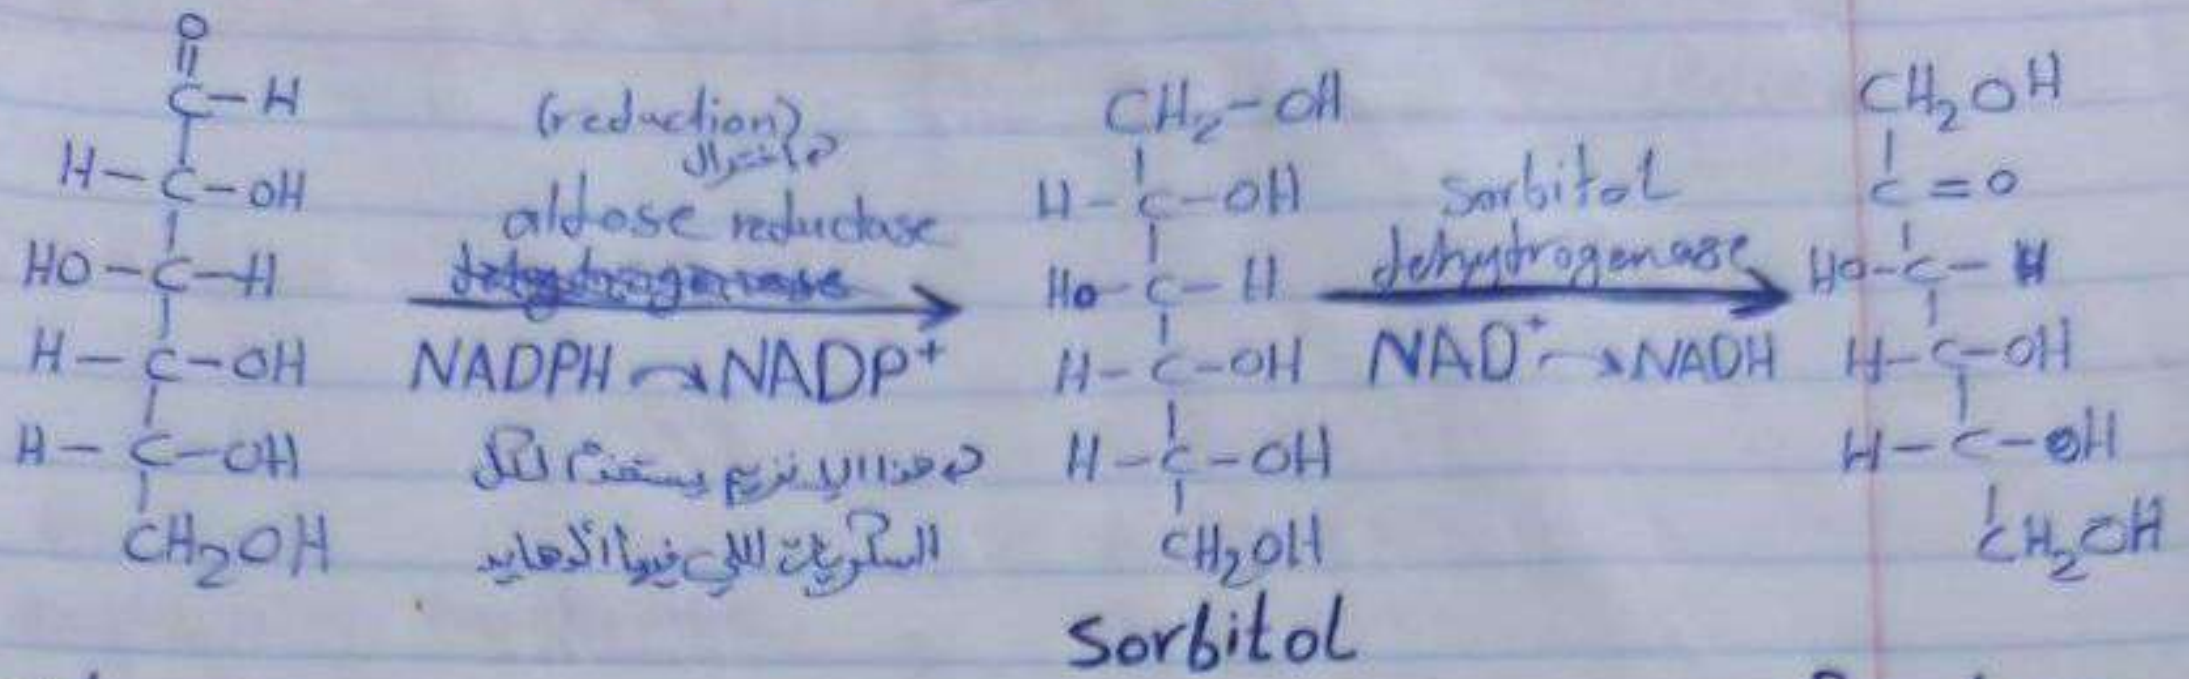 O
||
C-H
H-C-OH
HO-C-H
H-C-OH
H-C-OH
CH₂OH
(reduction)
اختزال
aldose reductase
NADPH → NADP⁺
هذا الإنزيم يستخدم لكل
السكريات اللي فيها ألدهايد
CH₂-OH
H-C-OH
HO-C-H
H-C-OH
H-C-OH
CH₂OH
Sorbitol
sorbitol
dehydrogenase
NAD⁺ → NADH
CH₂OH
C=O
HO-C-H
H-C-OH
H-C-OH
CH₂OH